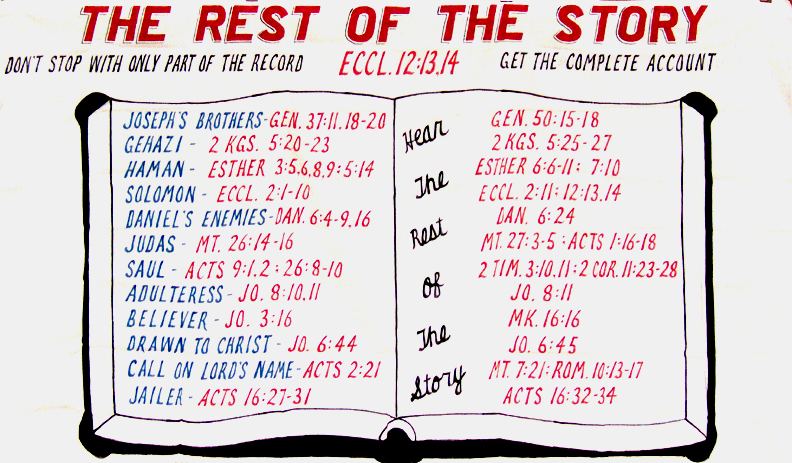 THE REST OF THE STORY
DON'T STOP WITH ONLY PART OF THE RECORD ECCL. 12:13,14 GET THE COMPLETE ACCOUNT
JOSEPH'S BROTHERS-GEN. 37:11, 18-20
GEHAZI - 2 KGS. 5:20-23
HAMAN - ESTHER 3:5,6,8,9; 5:14
SOLOMON - ECCL. 2:1-10
DANIEL'S ENEMIES-DAN. 6:4-9, 16
JUDAS - MT. 26:14-16
SAUL - ACTS 9:1,2; 26:8-10
ADULTERESS - JO. 8:10,11
BELIEVER - JO. 3:16
DRAWN TO CHRIST - JO. 6:44
CALL ON LORD'S NAME-ACTS 2:21
JAILER - ACTS 16:27-31
Hear
The
Rest
of
The
Story
GEN. 50:15-18
2 KGS. 5:25-27
ESTHER 6:6-11; 7:10
ECCL. 2:11; 12:13,14
DAN. 6:24
MT. 27:3-5; ACTS 1:16-18
2 TIM. 3:10,11; 2 COR. 11:23-28
JO. 8:11
MK. 16:16
JO. 6:45
MT. 7:21; ROM. 10:13-17
ACTS 16:32-34